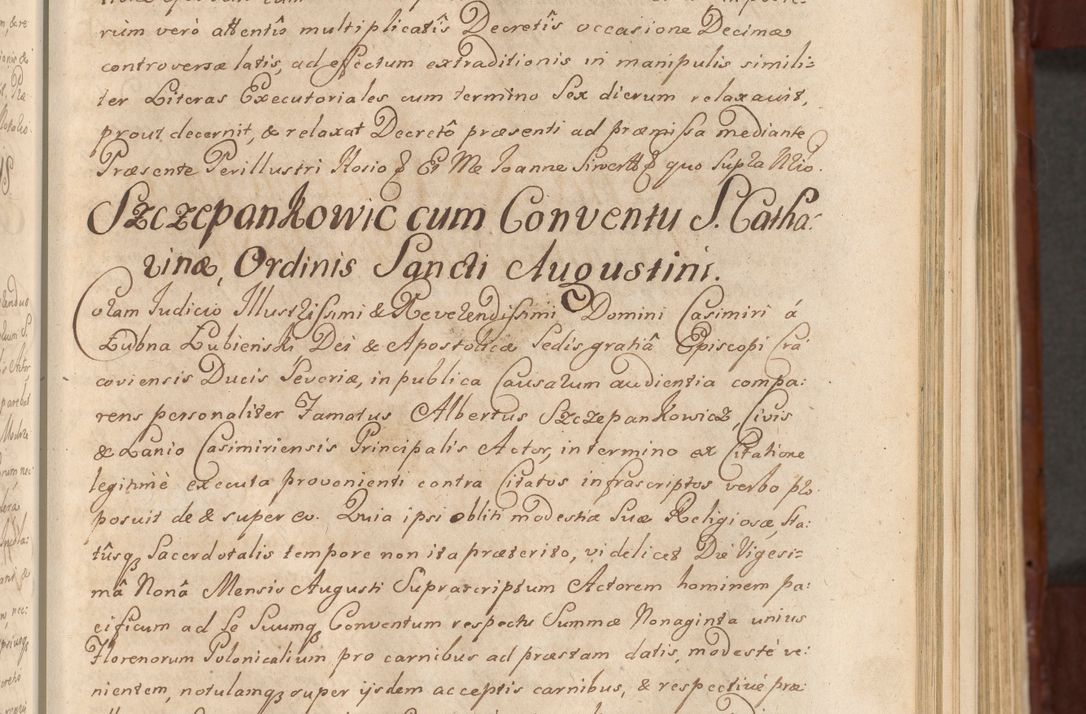 rium verò attentis multiplicatis Decretis occasione Decimæ
controversæ latis, ad effectum extraditionis in manipulis simili=
ter Literas Executoriales cum termino sex dierum relaxavit,
prout decernit, & relaxat Decretô præsenti ad præmissa mediante
Præsente Perillustri Hosio & Joanne quo supra
Szczepankowic cum Conventu S. Catha=
rinæ, Ordinis Sancti Augustini.
Coram Judicio Illustrissimi & Reverendissimi Domini Casimiri á
Łubna Łubieński Dei & Apostolicæ Sedis gratiâ Episcopi Cra
coviensis Ducis Severiæ, in publica Causarum audientia compa=
rens personaliter Famatus Albertus Szczepankowicz, Civis
& Lanio Casimiriensis Principalis Actor, in termino ex Citatione
legitimè executa provenienti contra Citatos infrascriptos verbo pro
posuit de & super eo. Quia ipsi obliti modestiæ suæ Religiosæ, Sta=
tûsq3 Sacerdotalis tempore non ita præterito, videlicet Die Vigesi=
mâ Nonâ Mensis Augusti Suprascriptum Actorem hominem pa=
cificum ad se Suumq3 Conventum respectu Summæ Nonaginta unius
Florenorum Polonicalium pro carnibus ad præstam datis, modestè ve=
nientem, notulamq3 super ijsdem acceptis carnibus, & respectivè præ=